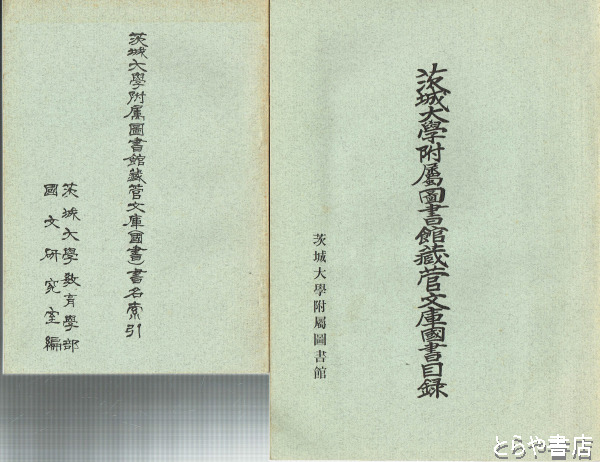 茨城大學附屬圖書館藏菅文庫國書目録
茨城大學附屬圖書館
茨城大學附属圖書館藏菅文庫(國書)書名索引
茨城大學教育學部
國文研究室編
とらや書店